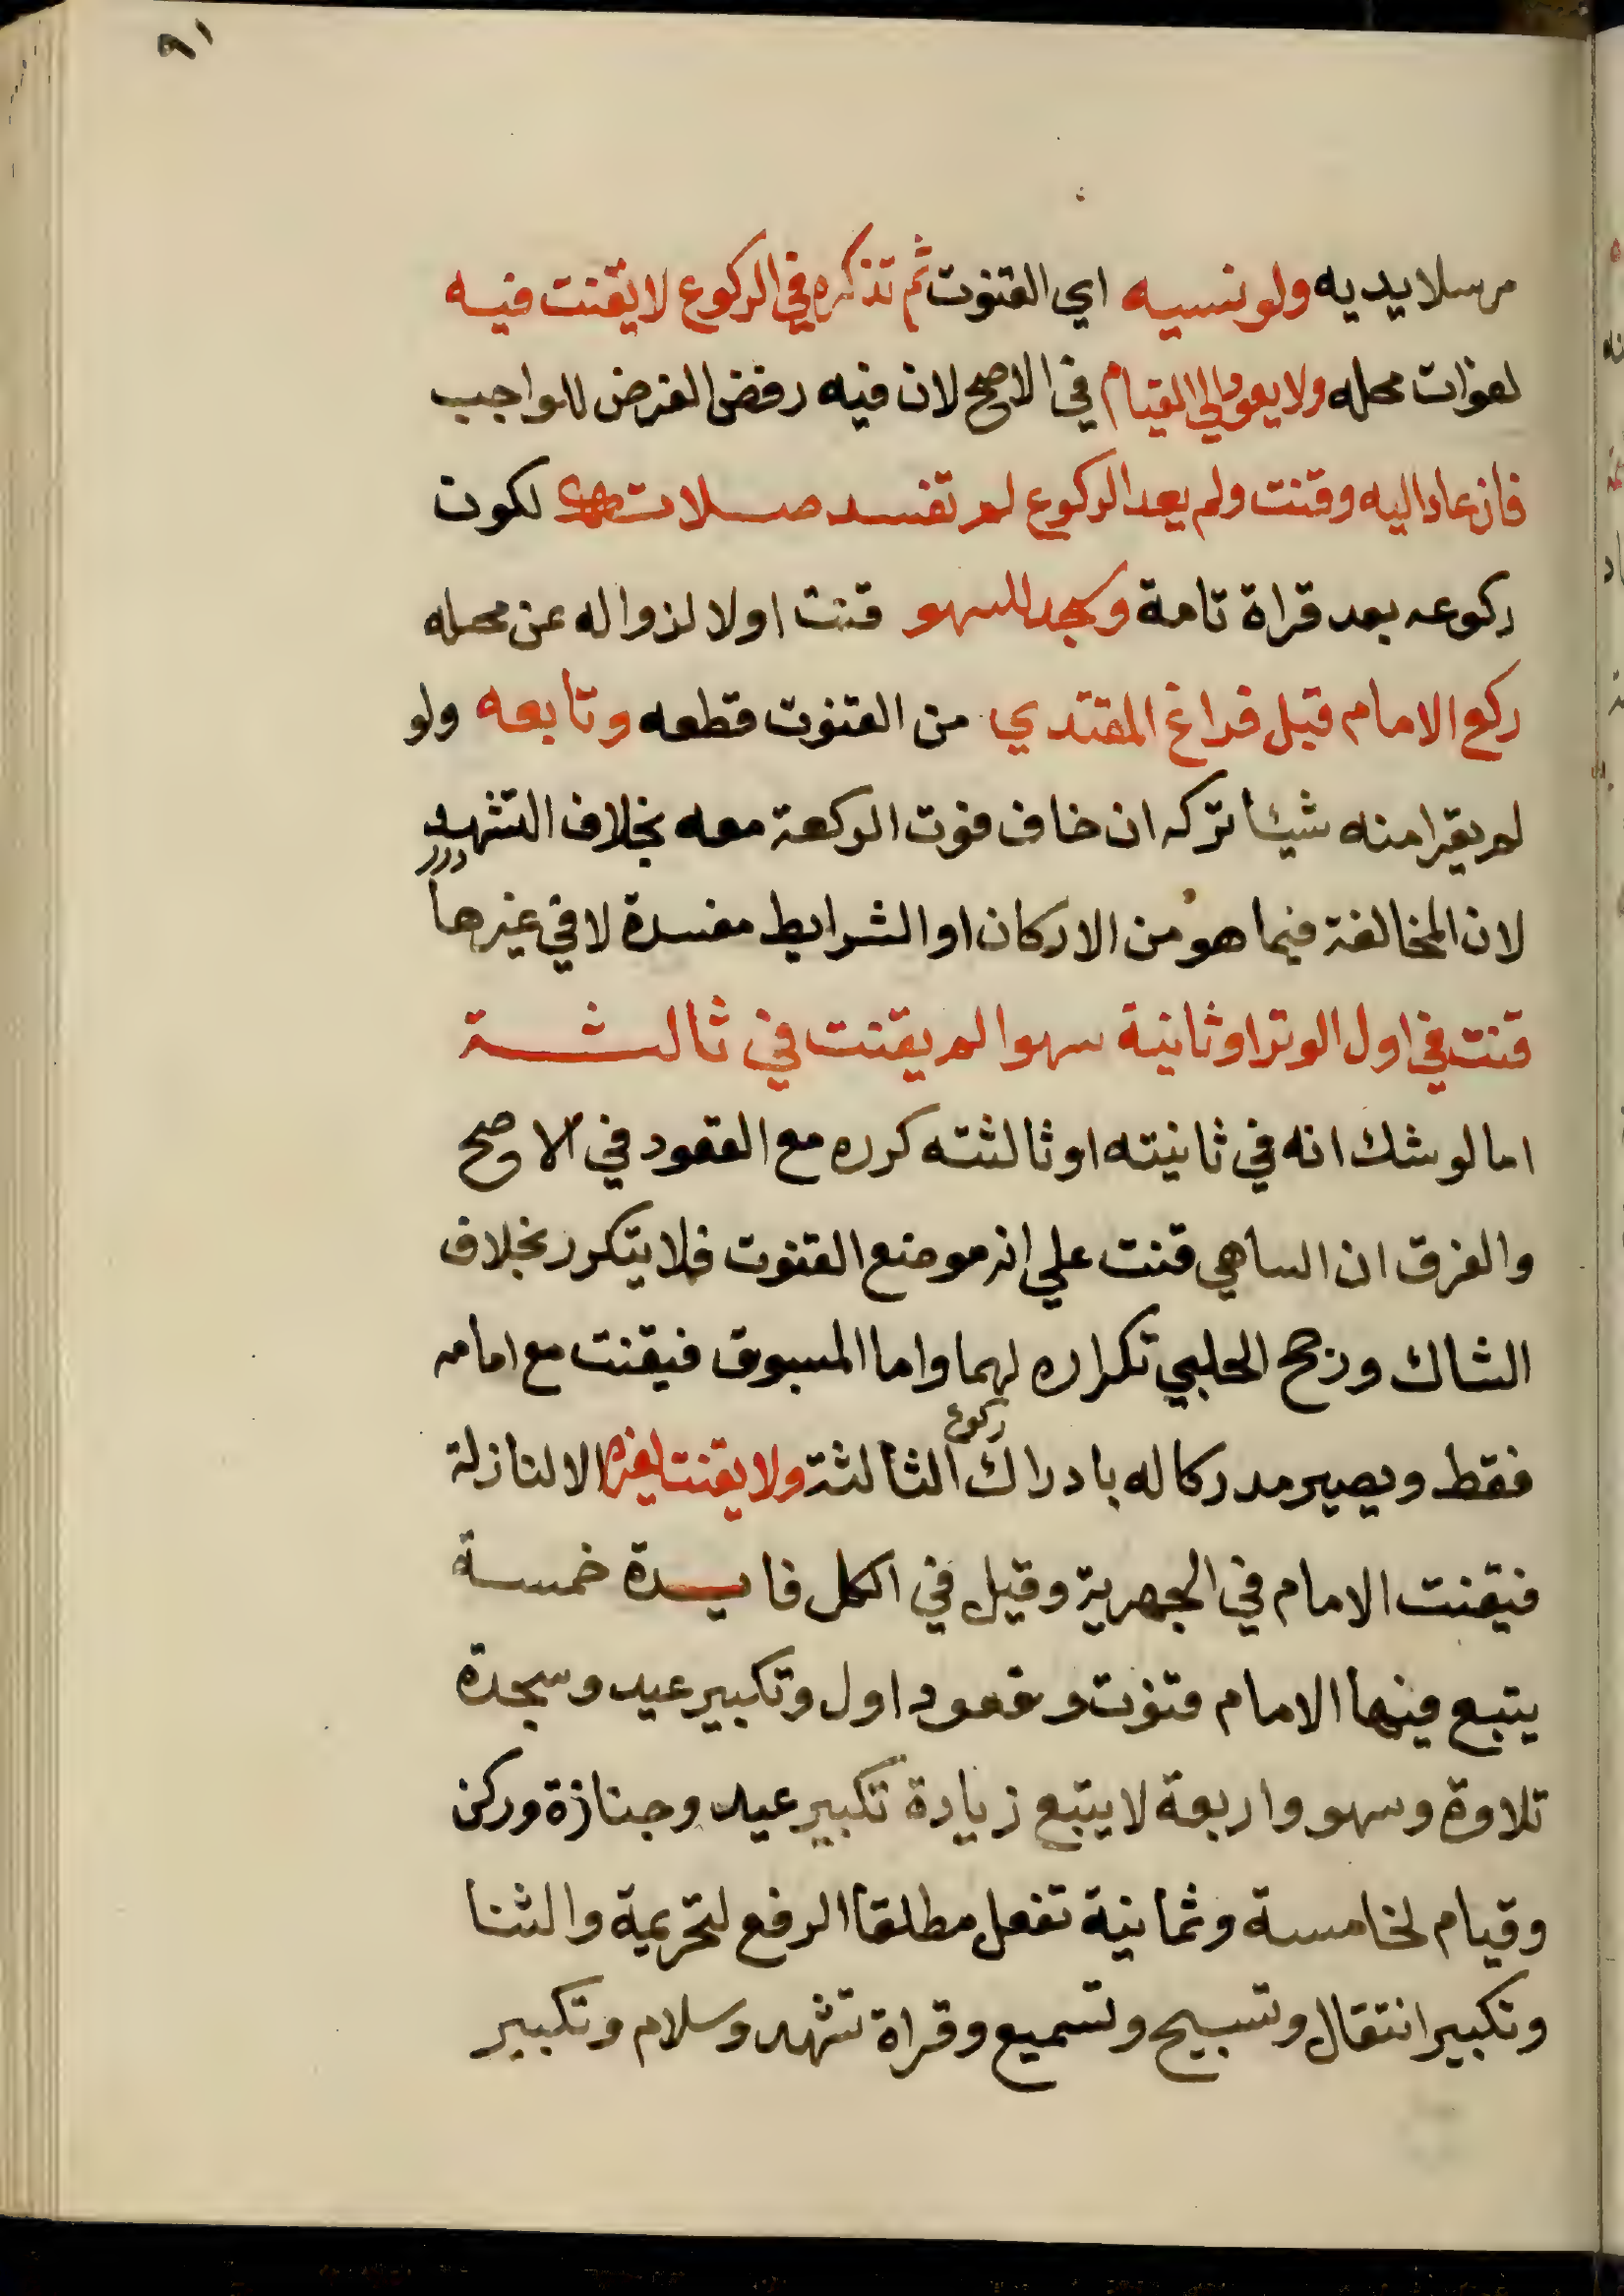 ٩١
مرسلا يديه ولو نسيه اي القنوت ثم تذكره في الركوع لا يقنت فيه
لفوات محله ولا يعود الي القيام في الاصح لان فيه رفض الفرض للواجب
فان عاد اليه وقنت ولم يعد الركوع لم تفسد صلاته لكون
ركوعه بعد قراة تامة وسجد للسهو قنت اولا لزواله عن محله
ركع الامام قبل فراغ المقتدي من القنوت قطعه وتابعه ولو
لم يقرا منه شيئا تركه ان خاف فوت الركعة معه بخلاف التشهد
درر
لان المخالفة فيما هو من الاركان او الشرايط مفسدة لا في غيرها
قنت في اول الوتر او ثانية سهوا لم يقنت في ثالثة
اما لو شك انه في ثانيته او ثالثته كرره مع القعود في الاصح
والفرق ان الساهي قنت علي انه موضع القنوت فلا يتكرر بخلاف
الشاك ورجح الحلبي تكراره لهما واما المسبوق فيقنت مع امامه
ركوع
فقط ويصير مدركا له بادراك الثالثة ولا يقنت لغيره الا لنازلة
فيقنت الامام في الجهرية وقيل في الكل فايدة خمسة
يتبع فيها الامام قنوت وقعود اول وتكبير عيد وسجدة
تلاوة وسهو واربعة لا يتبع زيادة تكبير عيد وجنازة وركن
وقيام لخامسة وثمانية تفعل مطلقا الرفع لتحريمة والثنا
وتكبير انتقال وتسبيح وتسميع وقراة تشهد وسلام وتكبير